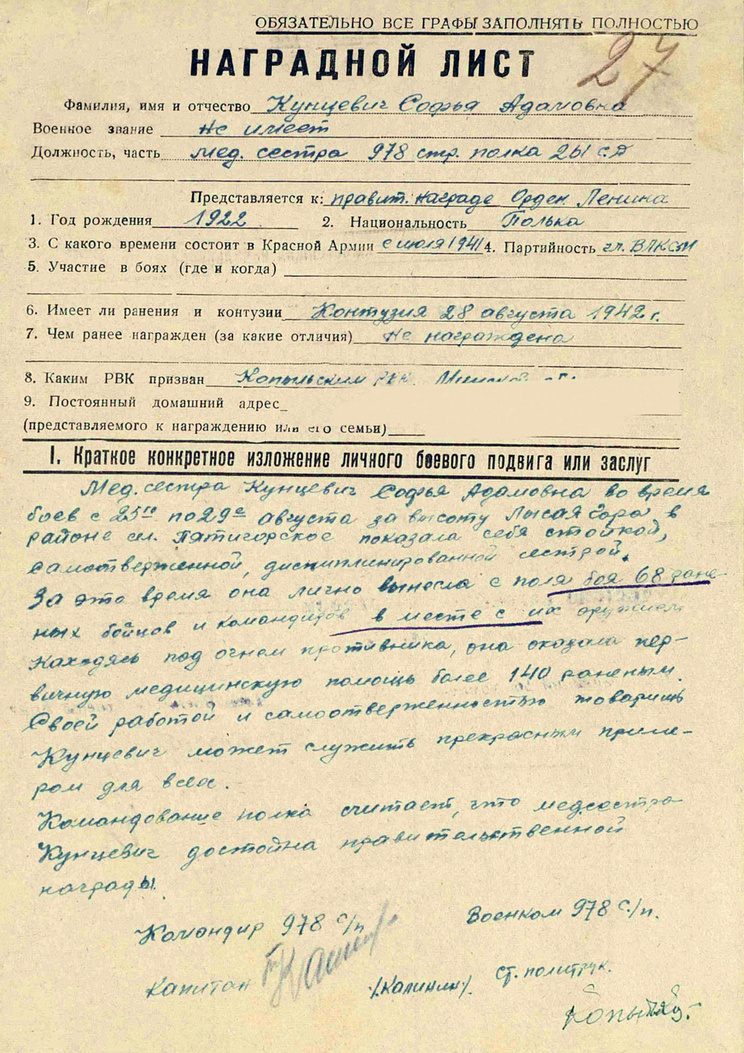 ОБЯЗАТЕЛЬНО ВСЕ ГРАФЫ ЗАПОЛНЯТЬ ПОЛНОСТЬЮ
27
НАГРАДНОЙ ЛИСТ
Фамилия, имя и отчество Кунцевич Софья Адамовна
Военное звание Не имеет
Должность, часть Мед. сестра 978 стр. полка 261 с.д
Представляется к: правит. награде Орден. Ленина
1. Год рождения 1922 2. Национальность Полька
3. С какого времени состоит в Красной Армии с июля 1941 4. Партийность чл. ВЛКСМ
5. Участие в боях (где и когда)
6. Имеет ли ранения и контузии Контузия 28 августа 1942 г.
7. Чем ранее награжден (за какие отличия) Не награждена
8. Каким РВК призван Копыльским РВК
9. Постоянный домашний адрес
(представляемого к награждению или его семьи)
I. Краткое конкретное изложение личного боевого подвига или заслуг
Мед. сестра Кунцевич Софья Адамовна во время
боев с 25го по 29е августа за высоту Лысая Гора в
районе сл. Пятигорское показала себя стойкой,
самоотверженной, дисциплинированной сестрой.
За это время она лично вынесла с поля боя 68 ране-
ных бойцов и командиров в месте с их оружием
Находясь под огнем противника, она оказала пер-
вичную медицинскую помощь более 140 раненым.
Своей работой и самоотверженностью товарищ
Кунцевич может служить прекрасным приме-
ром для всех.
Командование полка считает, что медсестра
Кунцевич достойна правительственной
награды.
Командир 978 с/п Военком 978 с/п.
Капитан /Калинин/. ст. политрук.